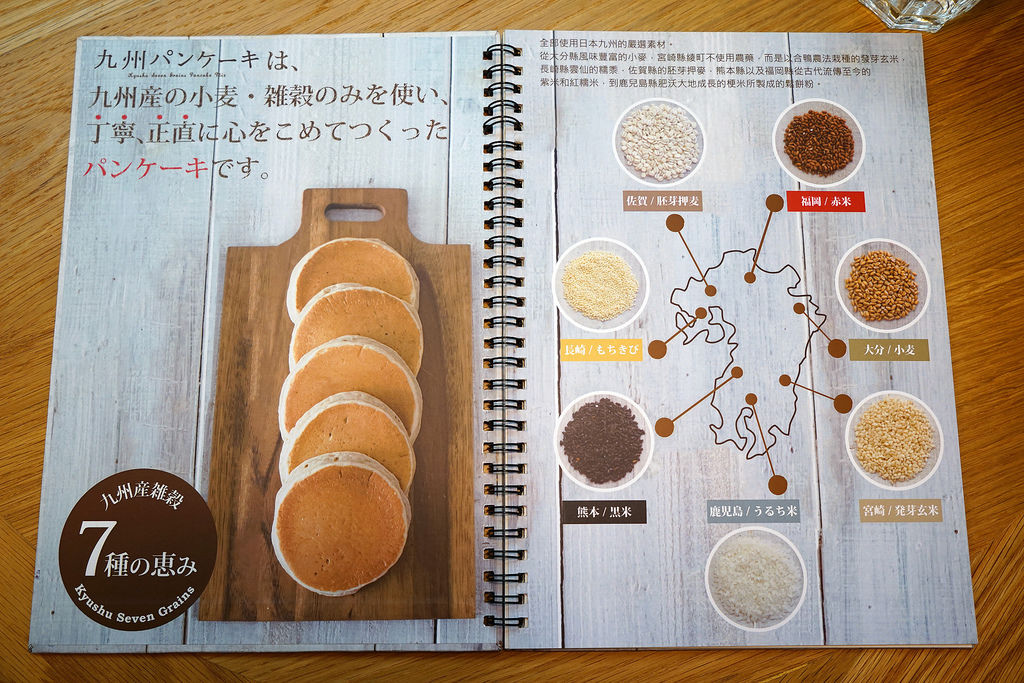 九州パンケーキは、
Kyushu Seven Grains Pancake Mix
九州産の小麦・雑穀のみを使い、
丁寧、正直に心をこめてつくった
パンケーキです。
九州産雑穀
7種の恵み
Kyushu Seven Grains
全部使用日本九州的嚴選素材。
從大分縣風味豐富的小麥,宮崎縣綾町不使用農藥,而是以合鴨農法栽種的發芽玄米,
長崎縣雲仙的糯黍,佐賀縣的胚芽押麥,熊本縣以及福岡縣從古代流傳至今的
紫米和紅糯米,到鹿兒島縣肥沃大地成長的粳米所製成的鬆餅粉。
佐賀 / 胚芽押麦
福岡 / 赤米
長崎 / もちきび
大分 / 小麦
熊本 / 黒米
鹿児島 / うるち米
宮崎 / 発芽玄米